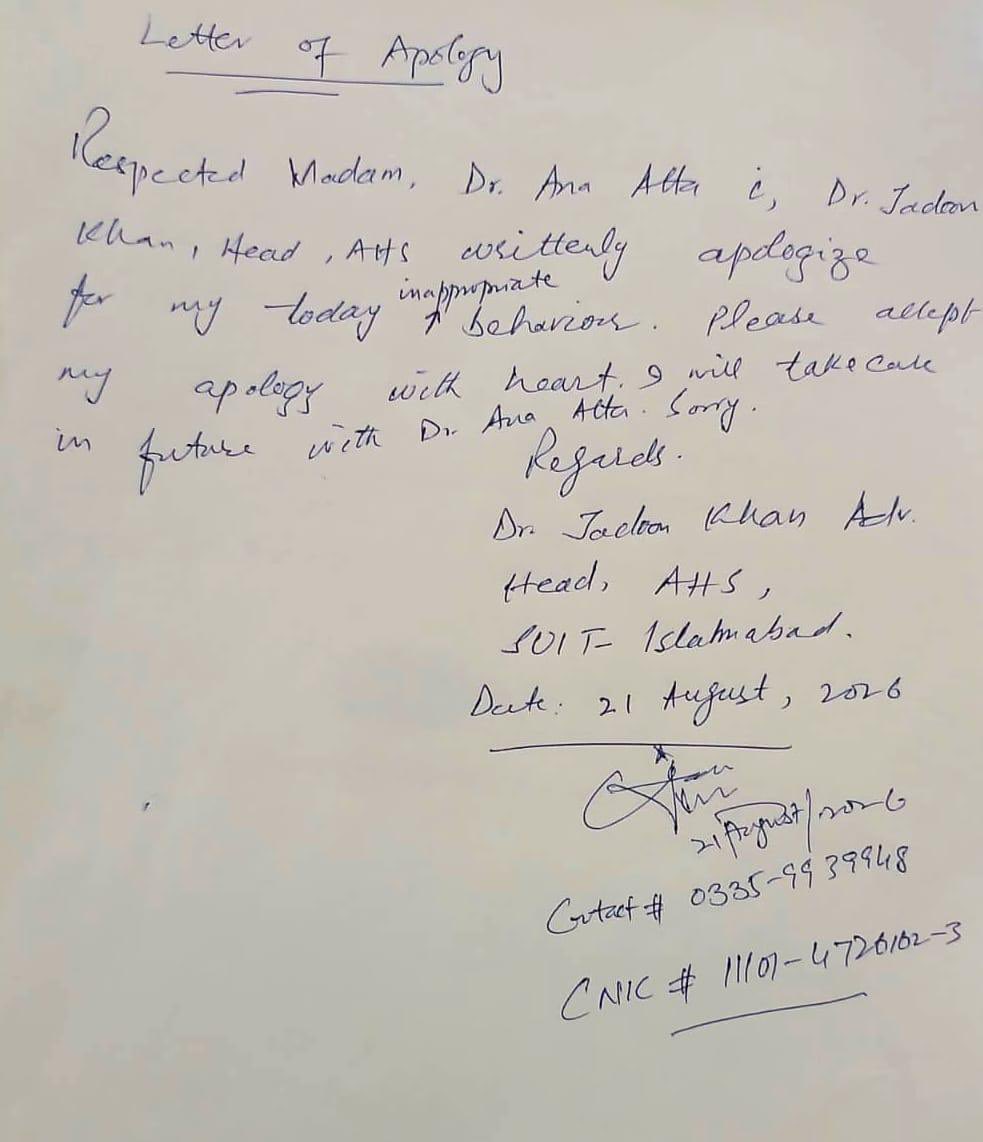 Letter of Apology
Respected Madam, Dr. Ana Atta i, Dr. Jadoon
Khan, Head, AHS writtenly apologize
for my today inappropriate behaviour. Please accept
my apology with heart. I will take care
in future with Dr. Ana Atta. Sorry.
Regards.
Dr. Jadoon Khan Adv.
Head, AHS,
SUIT- Islamabad.
Date: 21 August, 2026
21/August/2026
Contact # 0335-9939948
CNIC # 11101-4726162-3